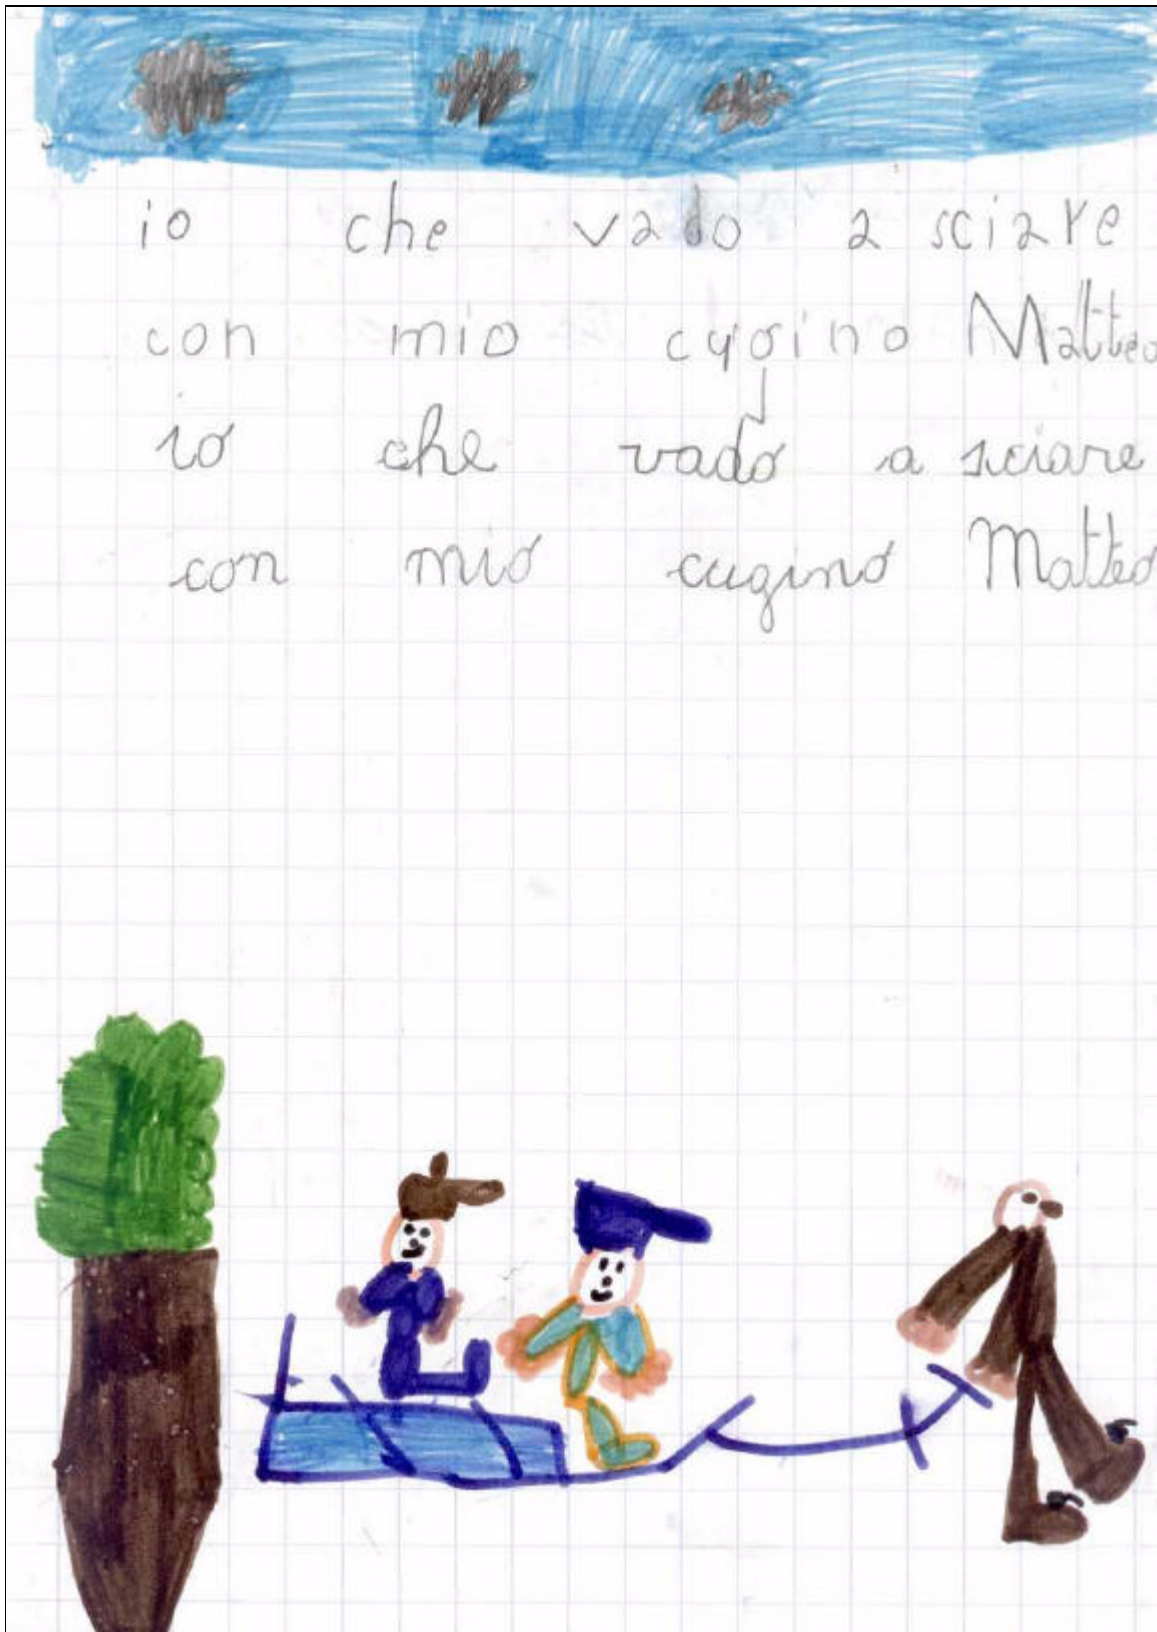 io che vado a sciare
con mio cugino Matteo
io che vado a sciare
con mio cugino Matteo